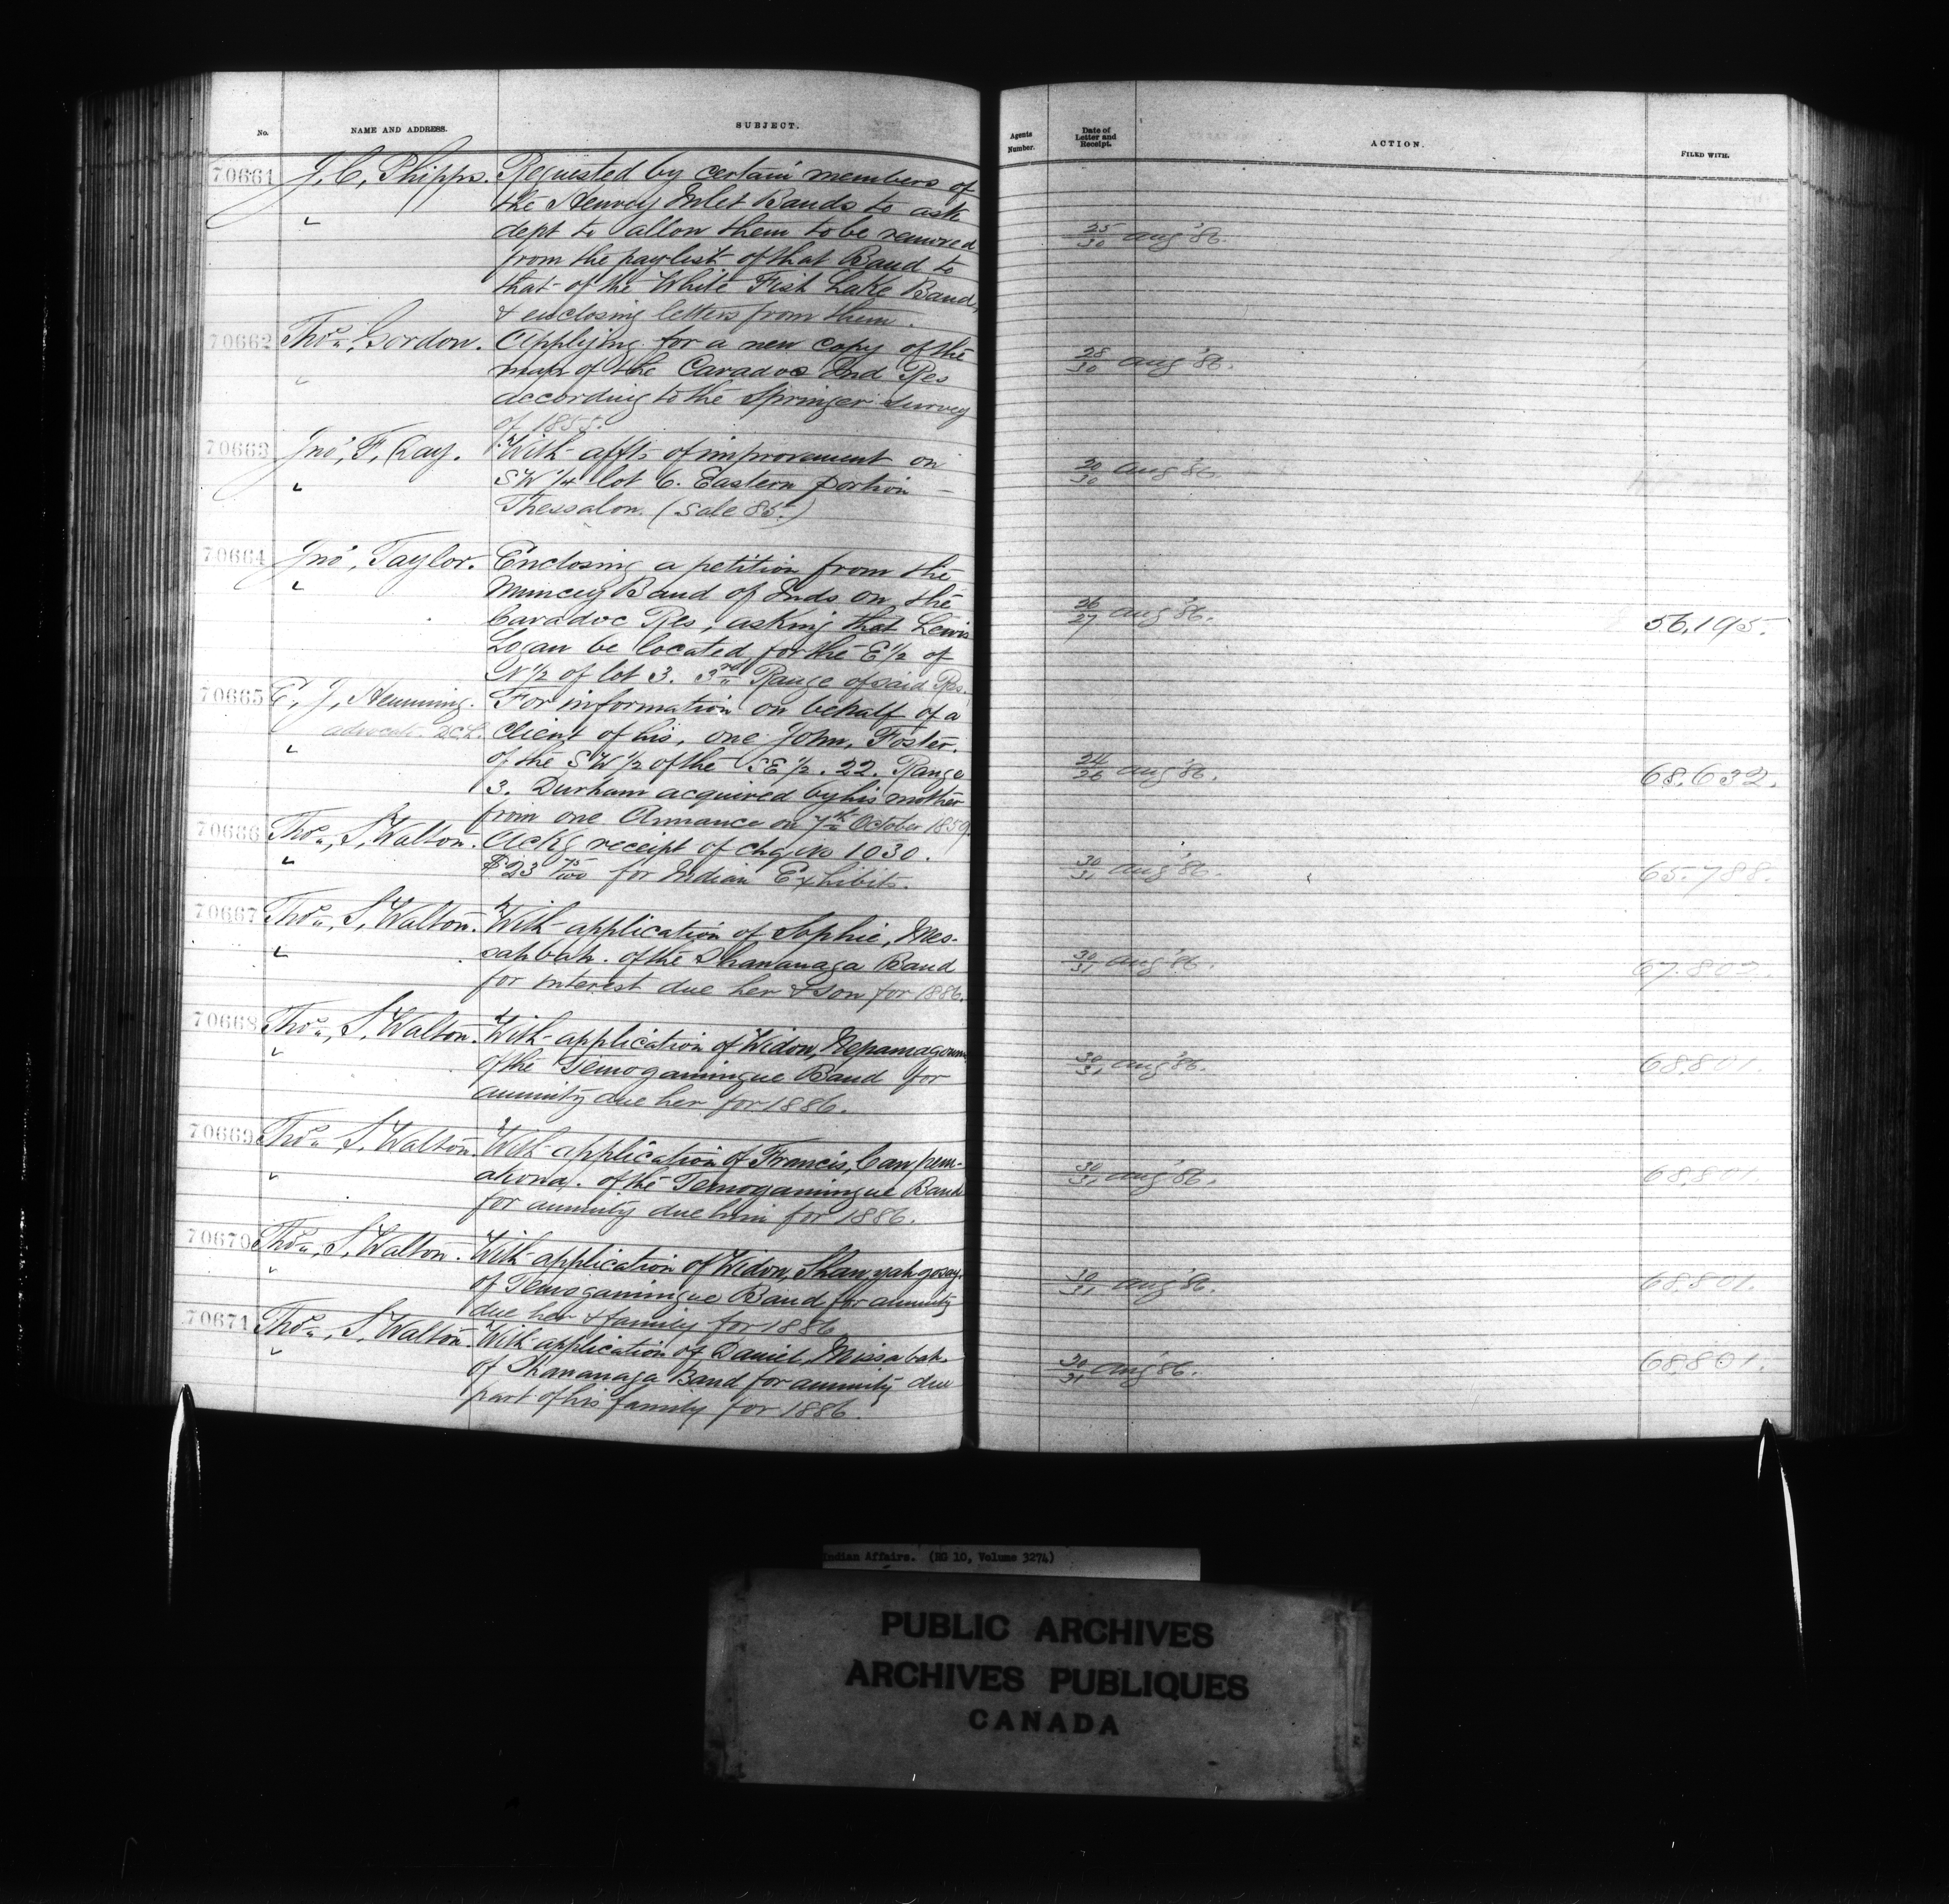 No. NAME AND ADDRESS. SUBJECT.
70661 J. C. Phipps. Requested by certain members of
the Henvey Inlet Bands to ask
dept to allow them to be removed
from the paylist of that Band to
that of the White Fish Lake Band,
& enclosing letters from them.
70662 Thos. Gordon. Applying for a new copy of the
map of the Caradoc Ind Res
according to the Springer Survey
of 1855.
70663 Jno. F. Day. With affts of improvement on
SW 1/4 lot 6. Eastern portion
Thessalon. (Sale 85.)
70664 Jno. Taylor. Enclosing a petition from the
Muncey Band of Inds on the
Caradoc Res, asking that Lewis
Logan be located for the E 1/2 of
N 1/2 of lot 3. 3rd Range of said Res.
70665 E. J. Hemming. For information on behalf of a
advocate D.C.L. client of his, one John, Foster.
of the SW 1/2 of the SE 1/2. 22. Range
3. Durham acquired by his mother
from one Annance on 7th October 1859.
70666 Thos. S. Walton. Ackg receipt of chq No 1030.
$23 75/100 for Indian Exhibits.
70667 Thos. S. Walton. With application of Sophie, Mes-
sahbah. of the Shananaga Band
for interest due her & son for 1886.
70668 Thos. S. Walton. With application of Widow,
of the Temogamingue Band for
annuity due her for 1886.
70669 Thos. S. Walton. With application of Francis,
of the Temogamingue Band
for annuity due him for 1886.
70670 Thos. S. Walton. With application of Widow,
of Temogamingue Band for annuity
due her & family for 1886
70671 Thos. S. Walton. With application of Daniel, Missabah.
of Shananaga Band for annuity due
part of his family for 1886.
Agents Number. Date of Letter and Receipt. ACTION. FILED WITH.
25/30 Aug '86.
28/30 Aug '86.
20/30 Aug '86.
26/27 Aug '86. 56.195.
24/26 Aug '86. 68.632.
30/31 Aug '86. 65.788.
30/31 Aug '86 67.802.
30/31 Aug '86. 68.801.
30/31 Aug '86. 68.801.
30/31 Aug '86. 68.801.
30/31 Aug '86. 68.801.
Indian Affairs. (RG 10, Volume 3274)
PUBLIC ARCHIVES
ARCHIVES PUBLIQUES
CANADA